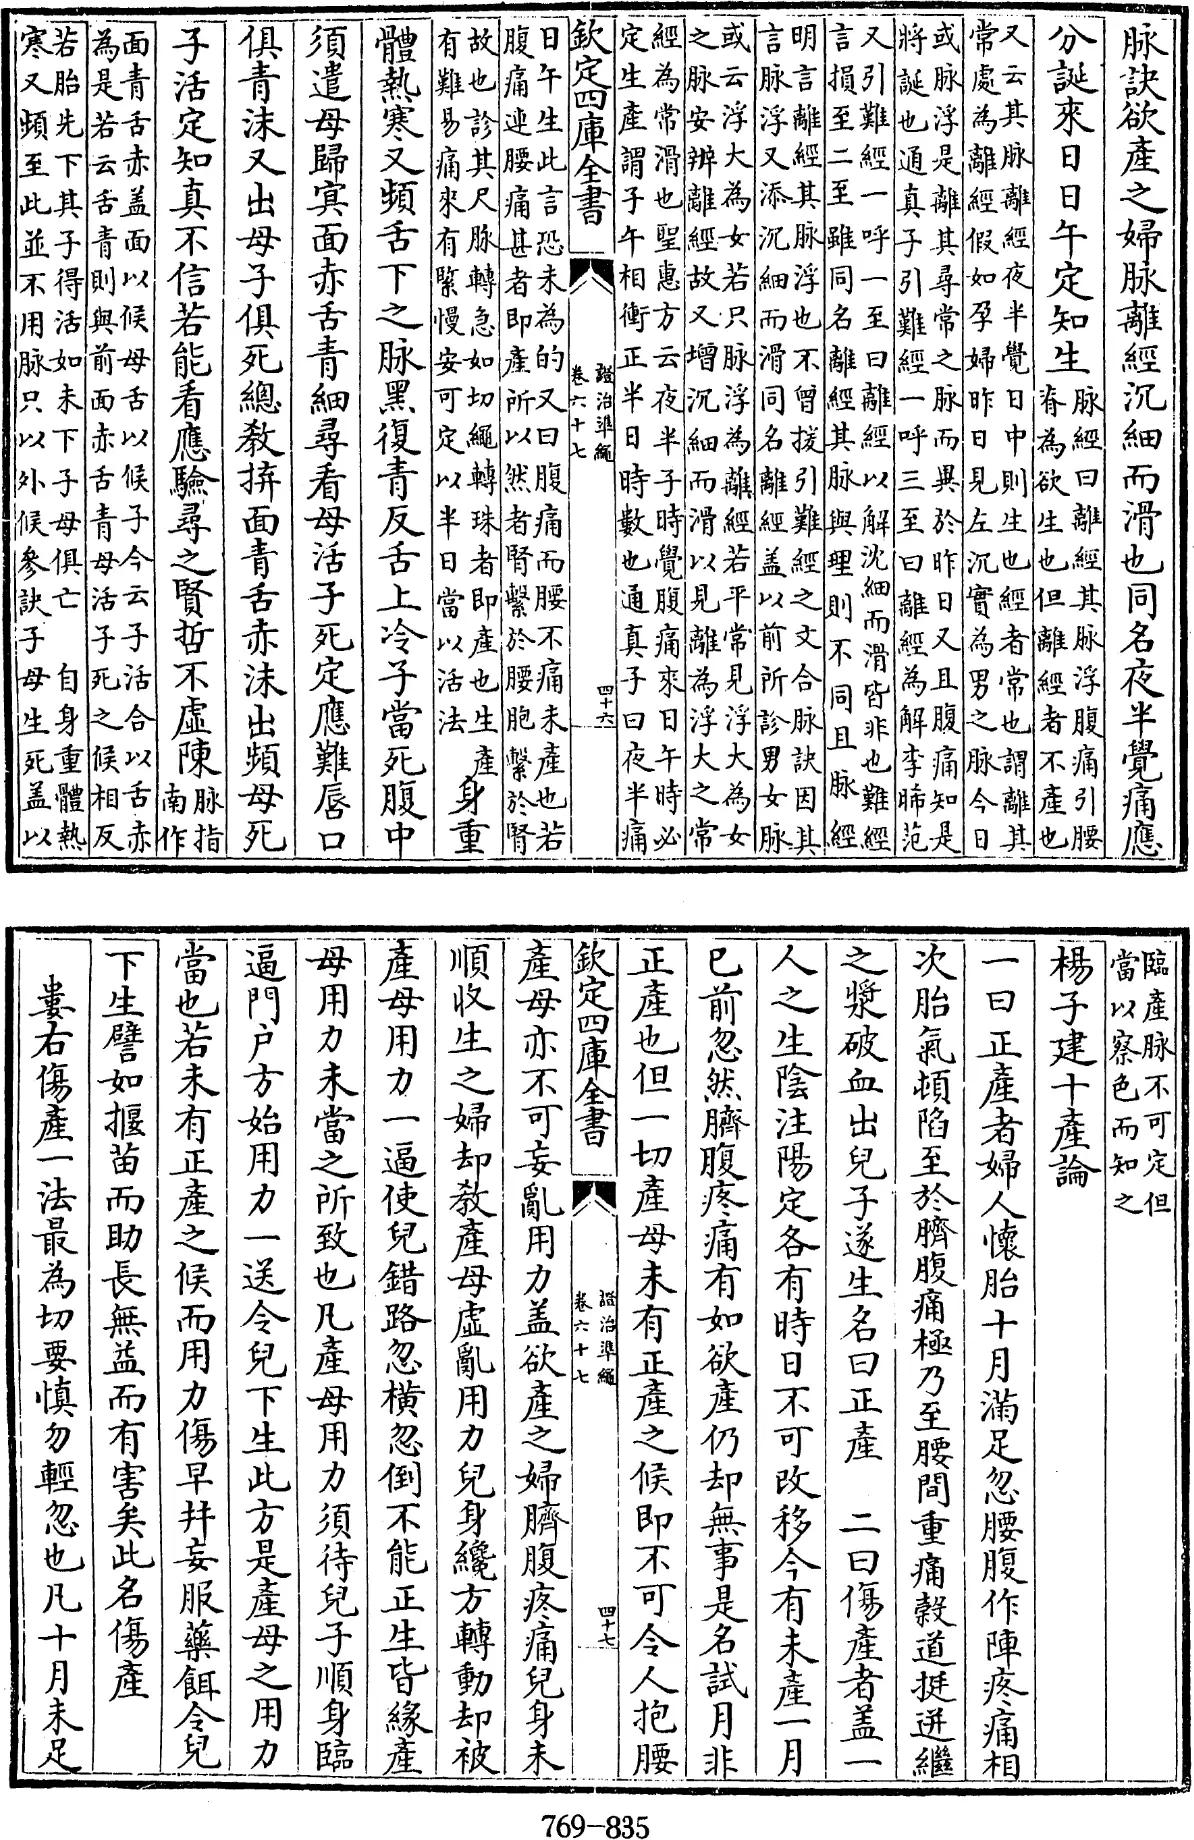 脉訣欲產之婦脉離經沉細而滑也同名夜半覺痛應
分誕來日日午定知生
脉經曰離經其脉浮腹痛引腰
脊為欲生也但離經者不產也
又云其脉離經夜半覺日中則生也經者常也謂離其
常處為離經假如孕婦昨日見左沉實為男之脉今日
或脉浮是離其尋常之脉而異於昨日又且腹痛知是
將誕也通真子引難經一呼三至曰離經為解李晞范
又引難經一呼一至曰離經以解沈細而滑皆非也難經
言損至二至雖同名離經其脉與理則不同且脉經
明言離經其脉浮也不曾援引難經之文合脉訣因其
言脉浮又添沉細而滑同名離經盖以前所診男女脉
或云浮大為女若只脉浮為離經若平常見浮大為女
之脉安辨離經故又增沉細而滑以見離為浮大之常
經為常滑也聖惠方云夜半子時覺腹痛來日午時必
定生產謂子午相衝正半日時數也通真子曰夜半痛
欽定四庫全書
證治準繩
卷六十七
四十六
日午生此言恐未為的又曰腹痛而腰不痛未產也若
腹痛連腰痛甚者即產所以然者腎繫於腰胞繫於腎
故也診其尺脉轉急如切繩轉珠者即產也生產
有難易痛來有緊慢安可定以半日當以活法
身重
體熱寒又頻舌下之脉黑復青反舌上冷子當死腹中
須遣母歸冥面赤舌青細尋看母活子死定應難唇口
俱青沫又出母子俱死總教拚面青舌赤沫出頻母死
子活定知真不信若能看應驗尋之賢哲不虛陳
脉指
南作
面青舌赤盖面以候母舌以候子今云子活合以舌赤
為是若云舌青則與前面赤舌青母活子死之候相反
若胎先下其子得活如未下子母俱亡　自身重體熱
寒又頻至此並不用脉只以外候參訣子母生死盖以
臨產脉不可定但
當以察色而知之
楊子建十產論
一曰正產者婦人懷胎十月滿足忽腰腹作陣疼痛相
次胎氣頓陷至於臍腹痛極乃至腰間重痛穀道挺迸繼
之漿破血出兒子遂生名曰正產　二曰傷產者盖一
人之生陰注陽定各有時日不可改移今有未產一月
已前忽然臍腹疼痛有如欲產仍却無事是名試月非
正產也但一切產母未有正產之候即不可令人抱腰
欽定四庫全書
證治準繩
卷六十七
四十七
產母亦不可妄亂用力盖欲產之婦臍腹疼痛兒身未
順收生之婦却教產母虛亂用力兒身纔方轉動却被
產母用力一逼使兒錯路忽橫忽倒不能正生皆緣產
母用力未當之所致也凡產母用力須待兒子順身臨
逼門户方始用力一送令兒下生此方是產母之用力
當也若未有正產之候而用力傷早并妄服藥餌令兒
下生譬如揠苗而助長無益而有害矣此名傷產
婁右傷產一法最為切要慎勿輕忽也凡十月未足
769-835